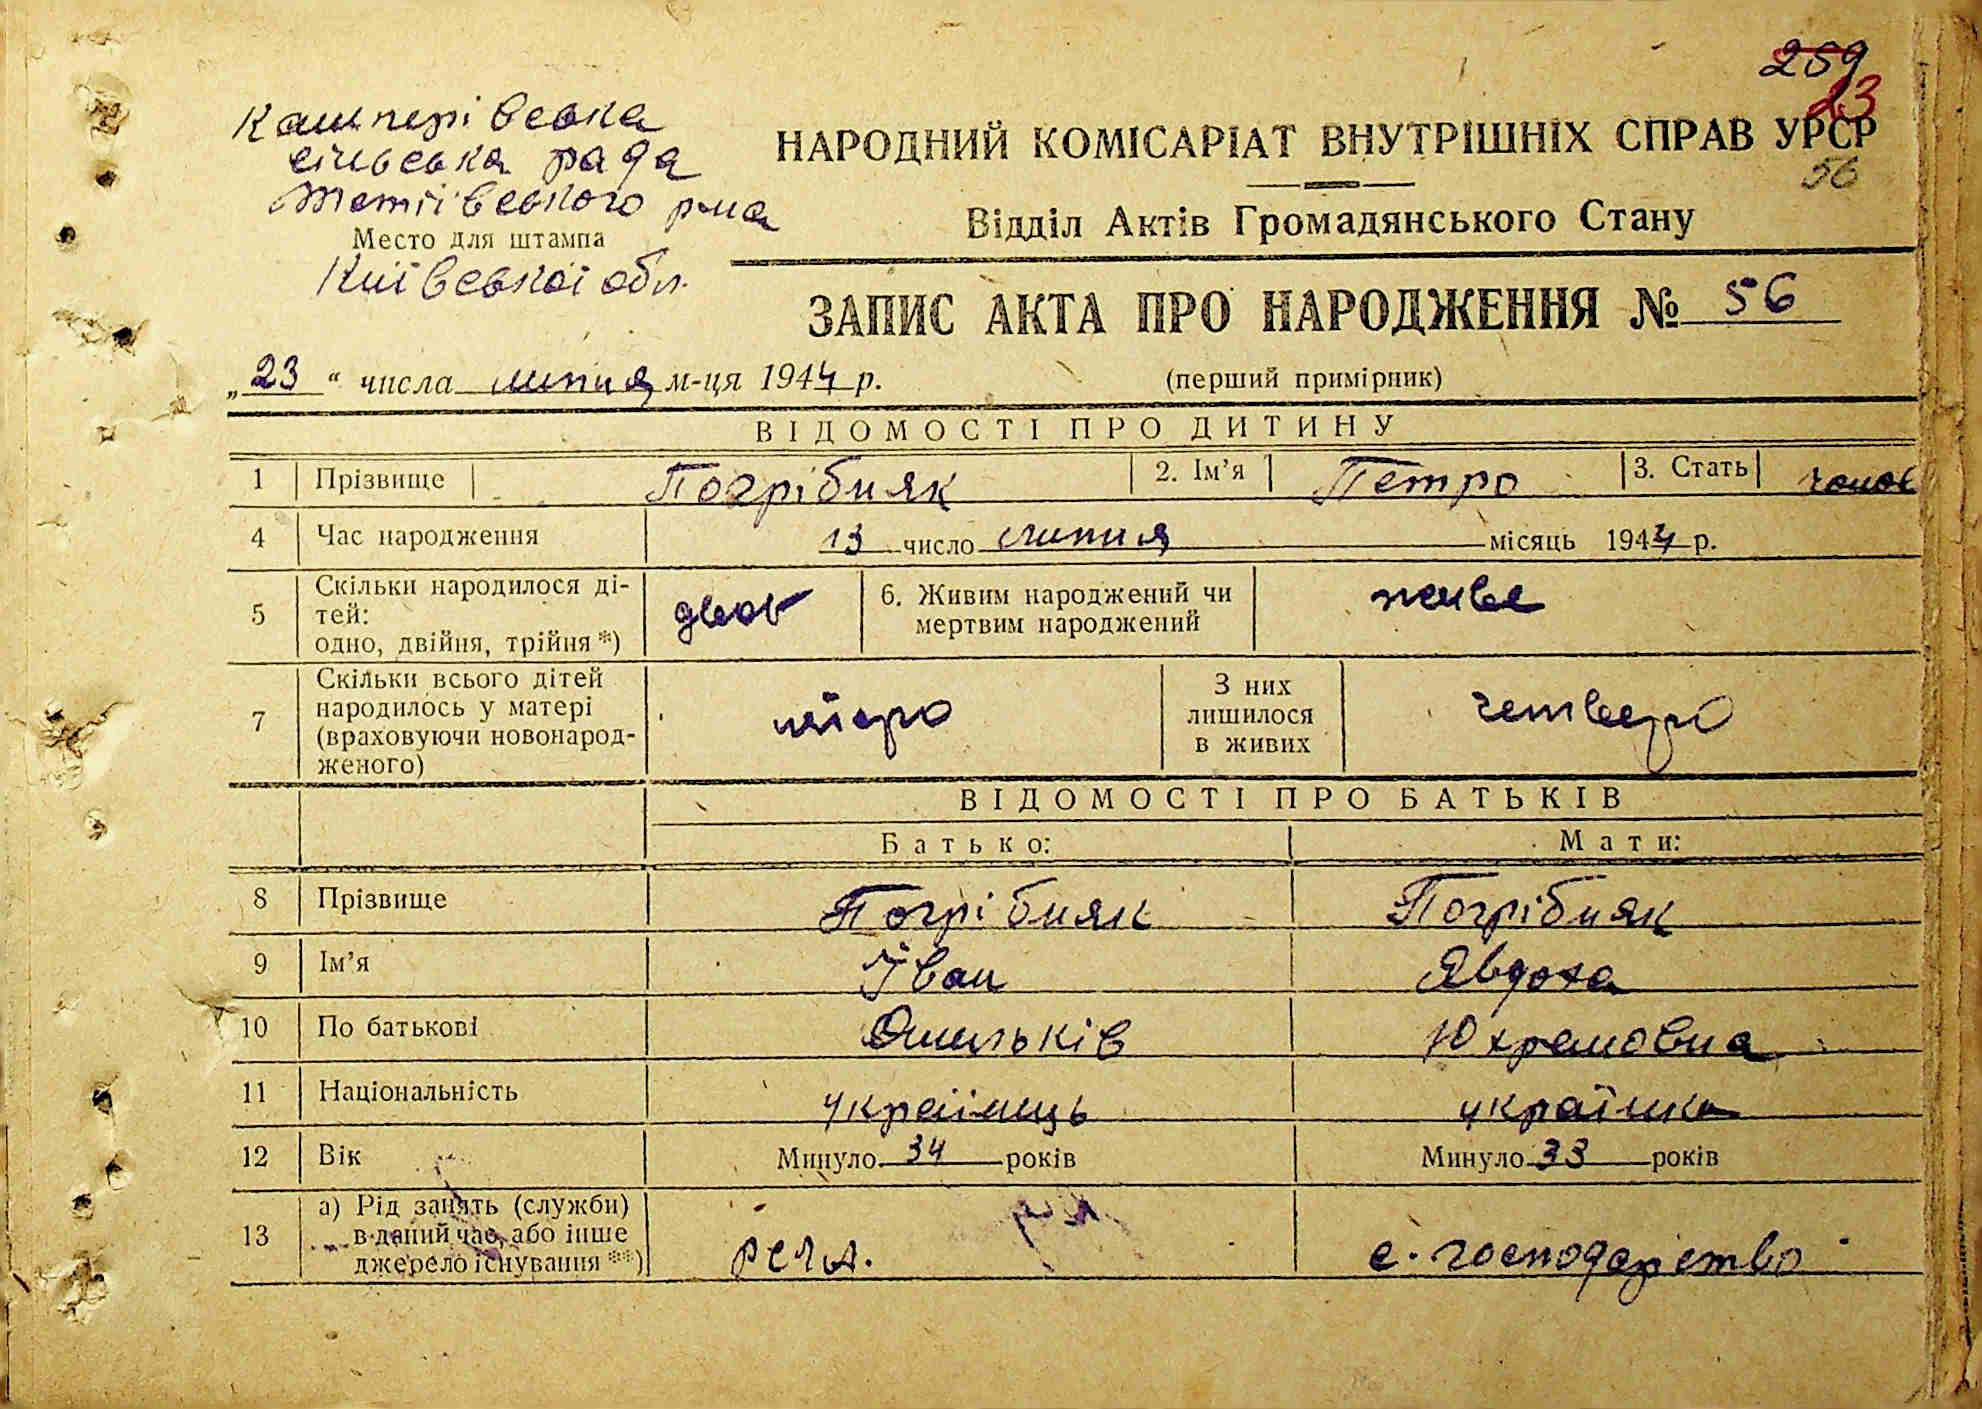 259
23
Кашперівська
сільська рада
Тетіївського р-на
Место для штампа
Київської обл.
НАРОДНИЙ КОМІСАРІАТ ВНУТРІШНІХ СПРАВ УРСР
56
Відділ Актів Громадянського Стану
ЗАПИС АКТА ПРО НАРОДЖЕННЯ № 56
„23“ числа липня м-ця 1944 р. (перший примірник)
ВІДОМОСТІ ПРО ДИТИНУ
1 Прізвище Погрібняк 2. Ім’я Петро 3. Стать чолов
4 Час народження 13 число липня місяць 1944 р.
5 Скільки народилося ді-
тей:
одно, двійня, трійня *) двоє 6. Живим народжений чи
мертвим народжений живе
7 Скільки всього дітей
народилось у матері
(враховуючи новонарод-
женого) пятеро З них
лишилося
в живих четверо
ВІДОМОСТІ ПРО БАТЬКІВ
Батько: Мати:
8 Прізвище Погрібняк Погрібняк
9 Ім’я Іван Явдоха
10 По батькові Омельків Юхремовна
11 Національність українець українка
12 Вік Минуло 34 років Минуло 33 років
13 а) Рід занять (служби)
в даний час, або інше
джерело існування **) РСЧА. с. господарство